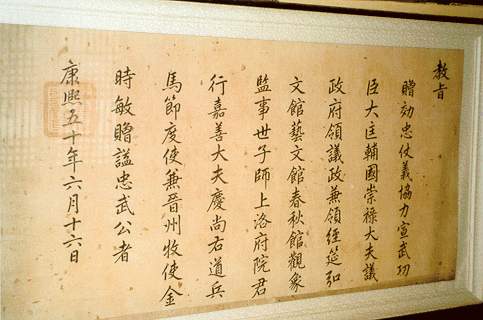 教旨
贈効忠仗義協力宣武功
臣大匡輔國崇祿大夫議
政府領議政兼領經筵弘
文館藝文館春秋館觀象
監事世子師上洛府院君
行嘉善大夫慶尚右道兵
馬節度使兼晉州牧使金
時敏贈諡忠武公者
康熙五十年六月十六日